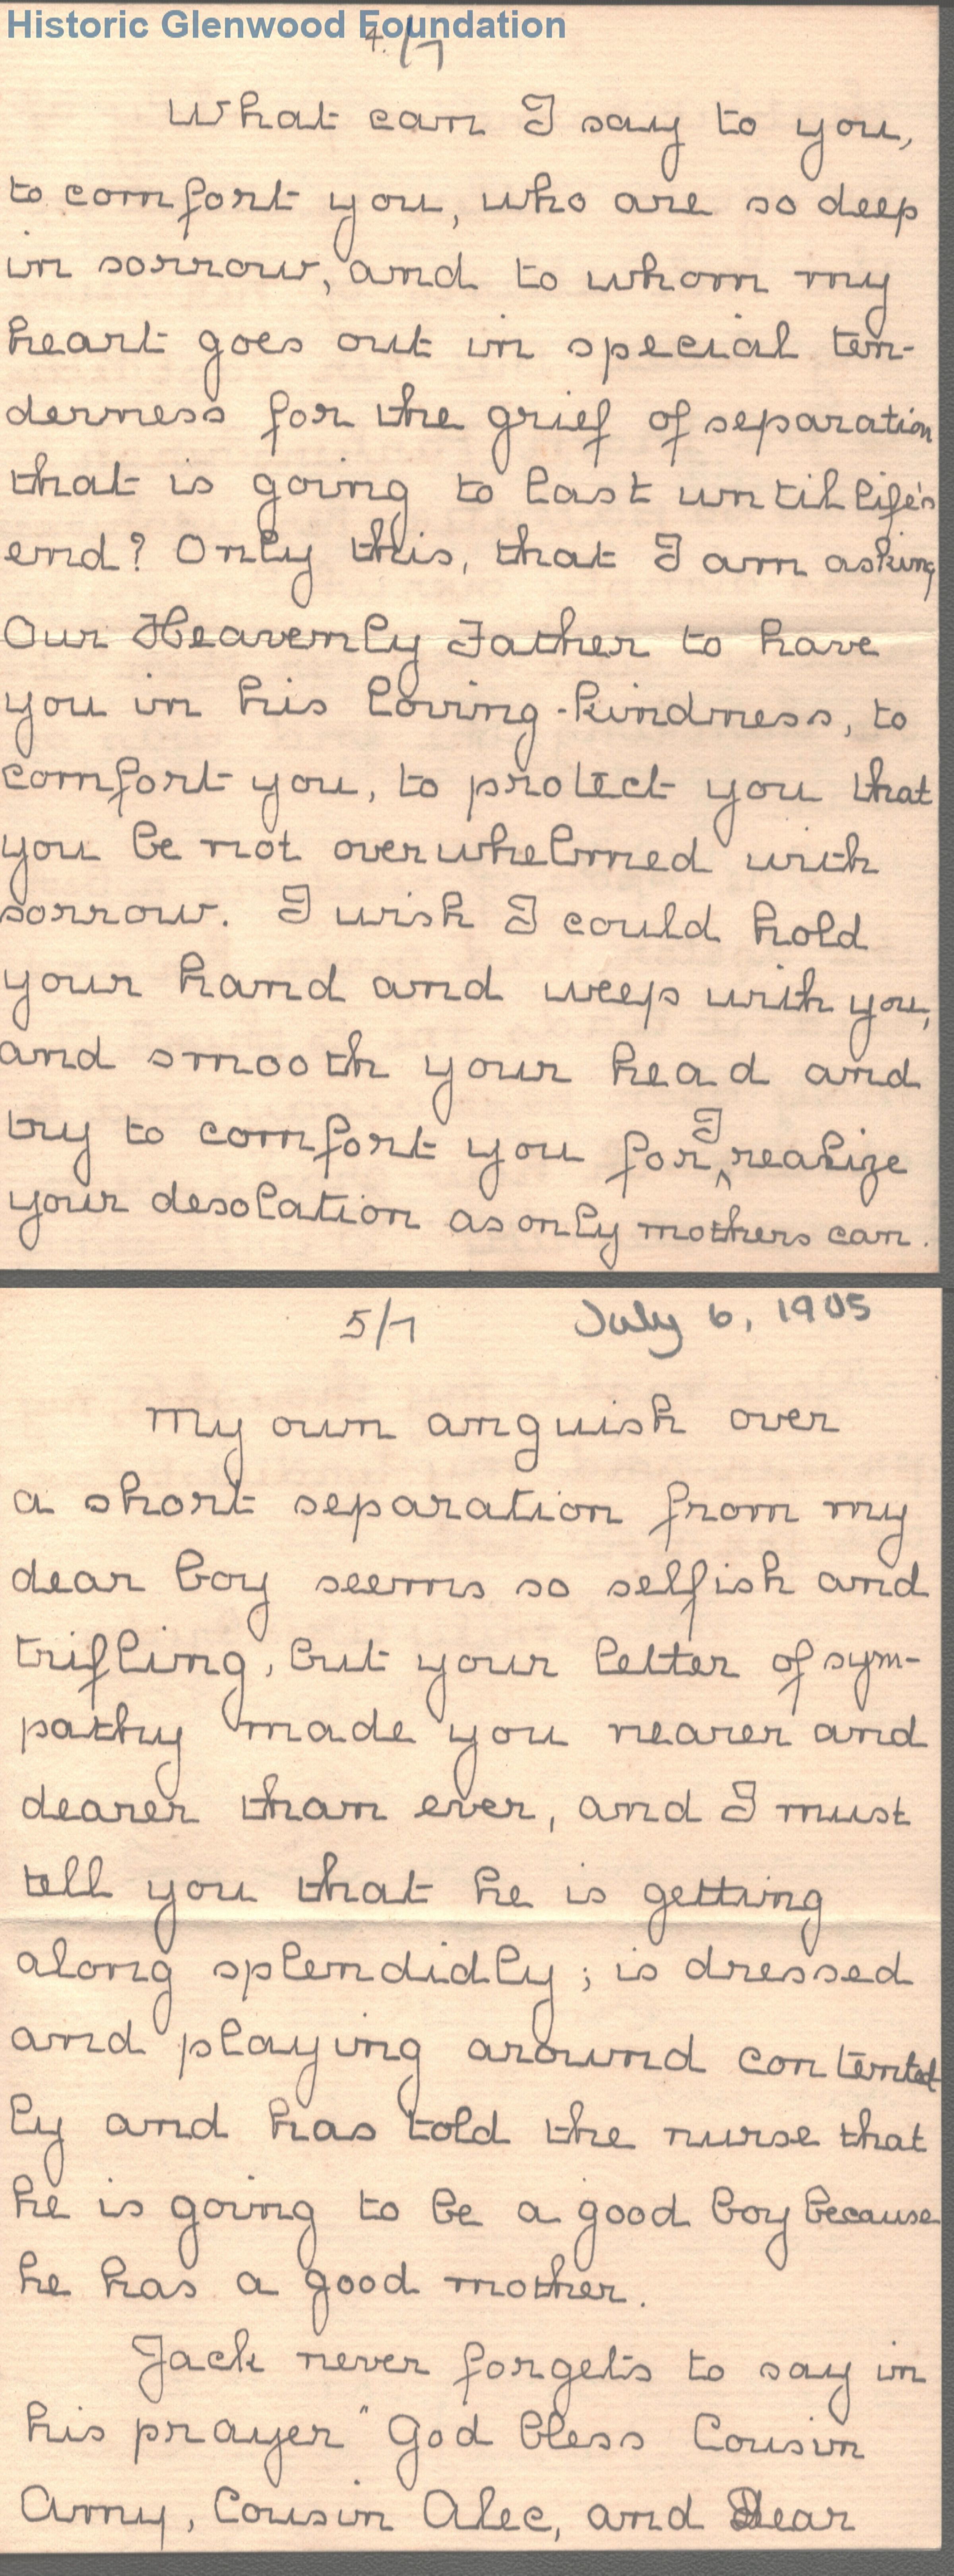 Historic Glenwood Foundation
4./7
What can I say to you,
to comfort you, who are so deep
in sorrow, and to whom my
heart goes out in special ten-
derness for the grief of separation
that is going to last until life's
end? Only this, that I am asking
Our Heavenly Father to have
you in his loving-kindness, to
comfort you, to protect you that
you be not overwhelmed with
sorrow. I wish I could hold
your hand and weep with you,
and smooth your head and
try to comfort you for I realize
your desolation as only mothers can.
5/7 July 6, 1905
My own anguish over
a short separation from my
dear boy seems so selfish and
trifling, but your letter of sym-
pathy made you nearer and
dearer than ever, and I must
tell you that he is getting
along splendidly; is dressed
and playing around contented
ly and has told the nurse that
he is going to be a good boy because
he has a good mother.
Jack never forgets to say in
his prayer "God bless Cousin
Amy, Cousin Alec, and Dear